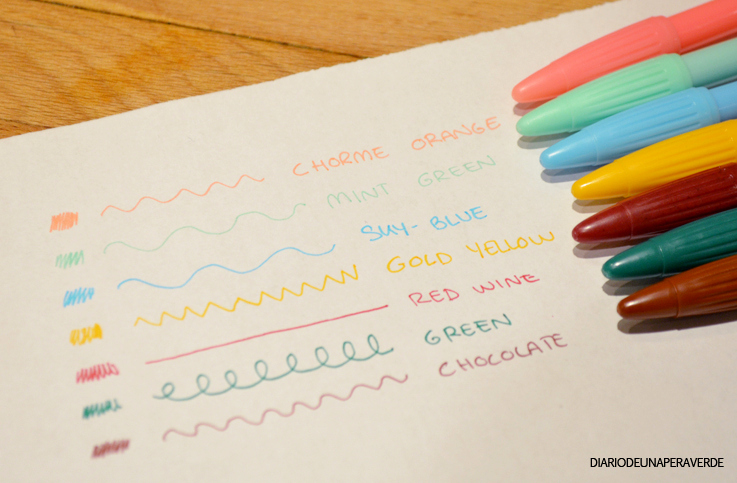 CHORME ORANGE
MINT GREEN
SKY-BLUE
GOLD YELLOW
RED WINE
GREEN
CHOCOLATE
DIARIODEUNAPERAVERDE